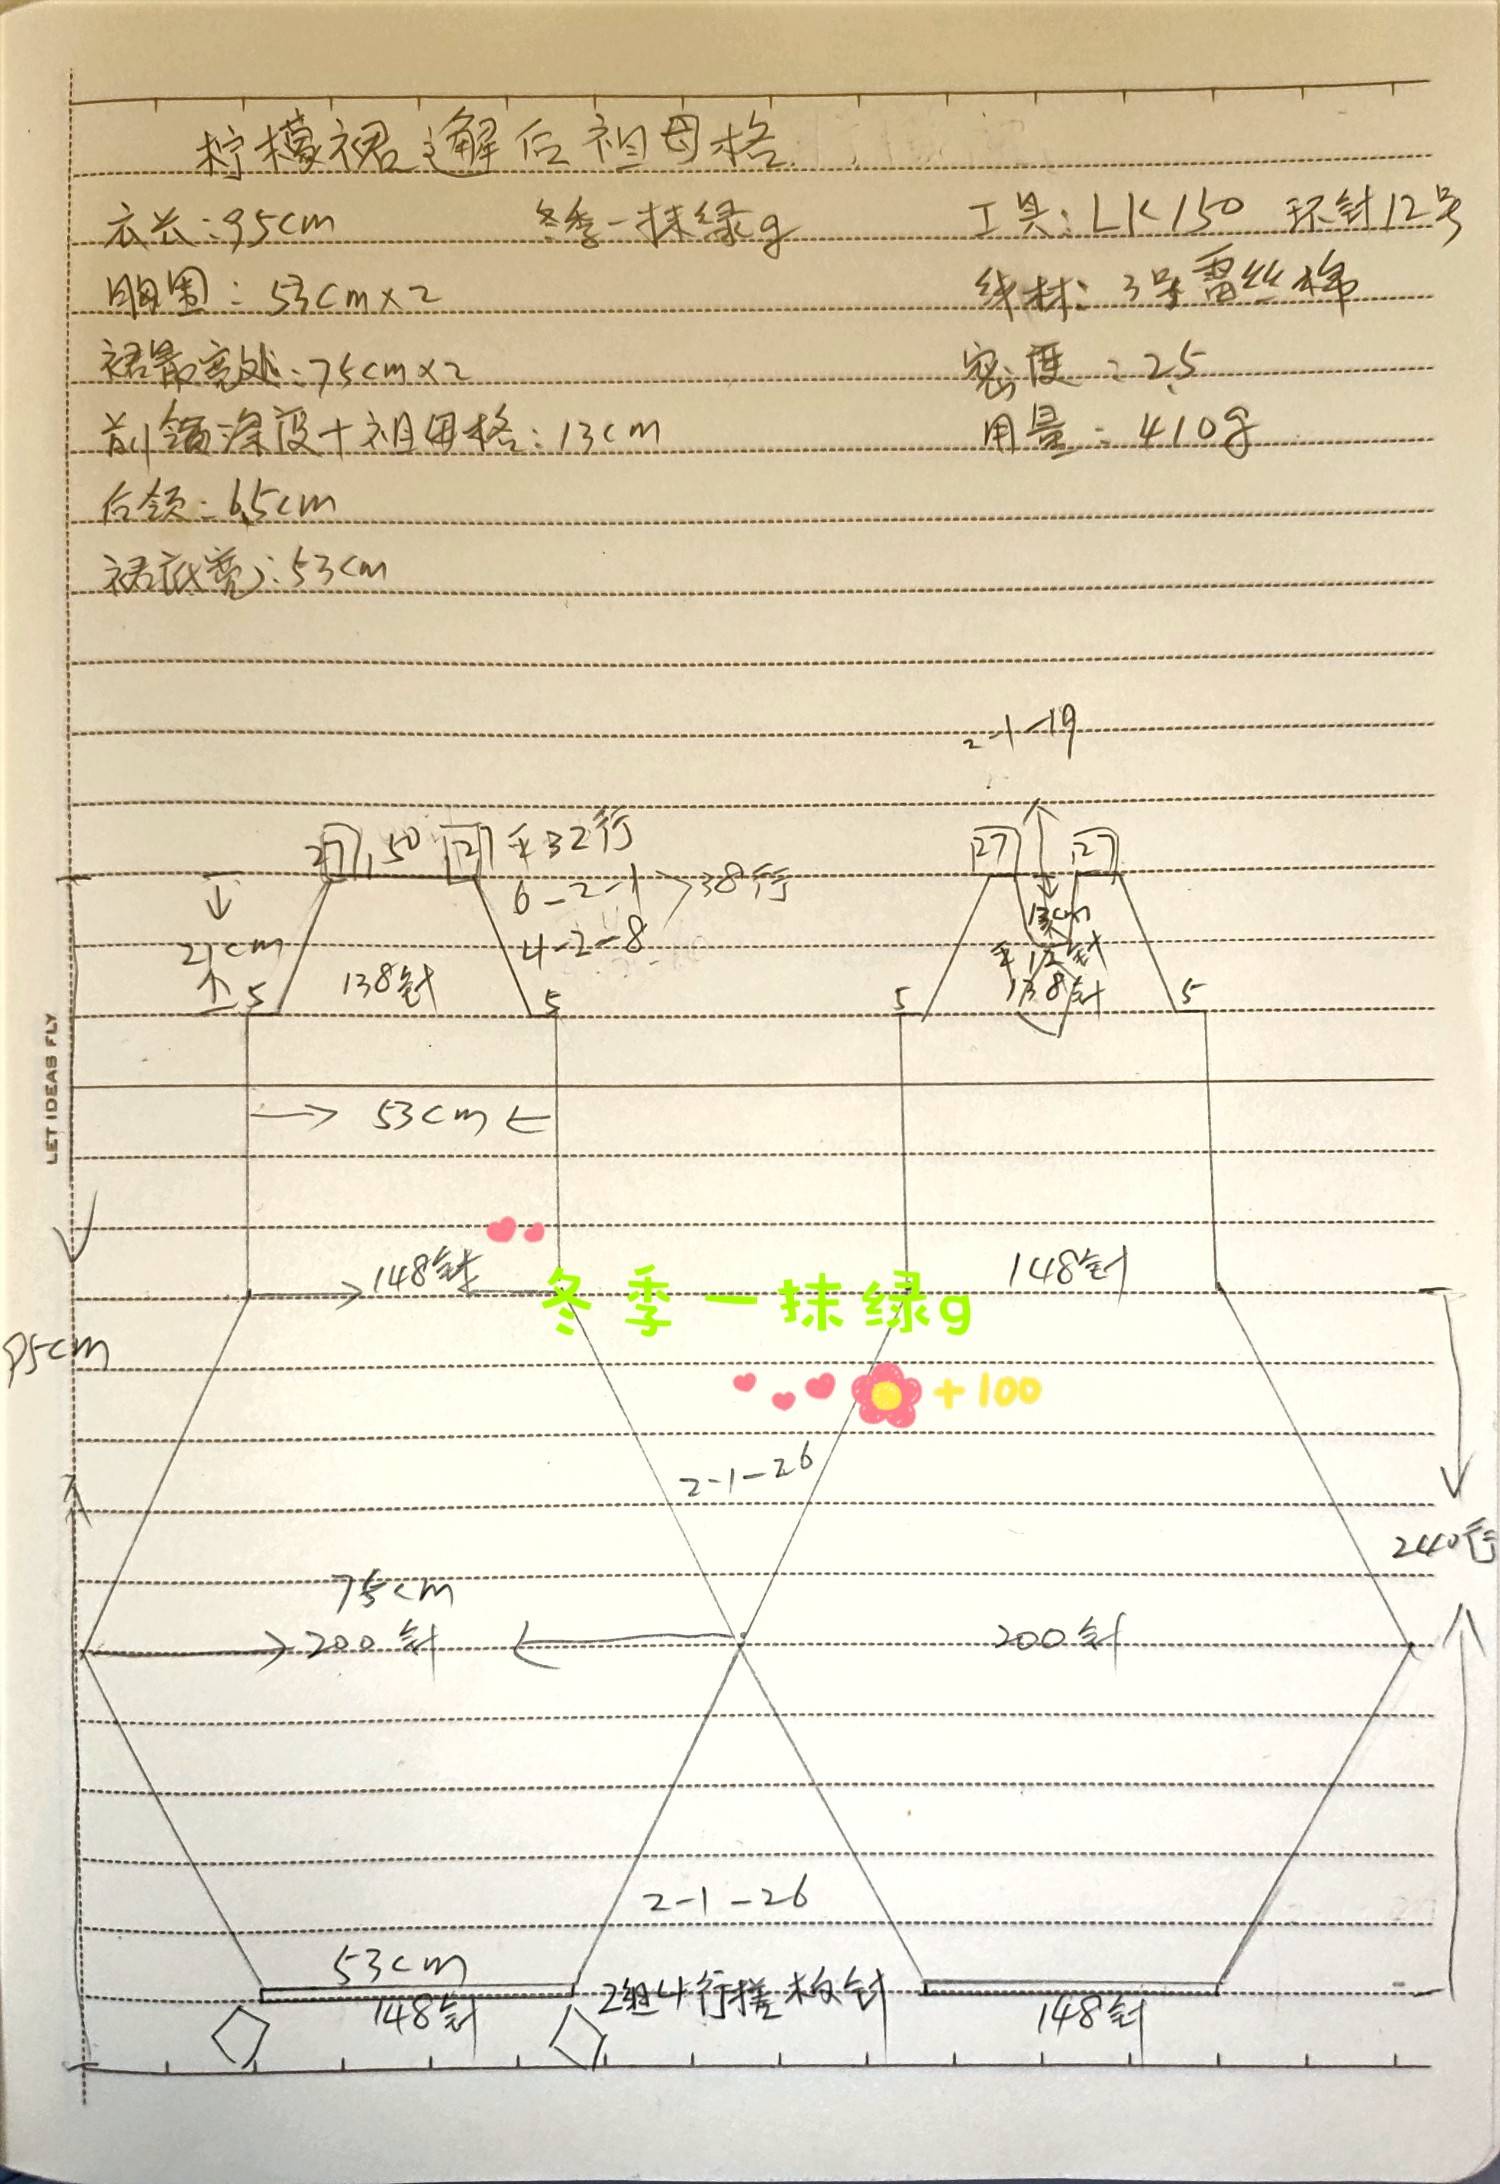 柠檬裙逢解后祖母格
衣长：95cm 冬季一抹绿g 工具：LK150 环针12号
胸围：53cm×2 线材：3号蕾丝棉
裙最宽处：75cm×2 密度：2.5
前领深度+祖母格：13cm 用量：410g
后领：6.5cm
裙底宽：53cm
2-1-19
27 50 27 平32行 27 27
6-2-1 >38行
4-2-8
13cm
21cm 平12针
5 138针 5 5 138针 5
53cm
148针 148针
冬季一抹绿g
95cm
+100
2-1-26
240行
75cm
200针 200针
2-1-26
53cm
148针 2组4行搓板针 148针
LET IDEAS FLY